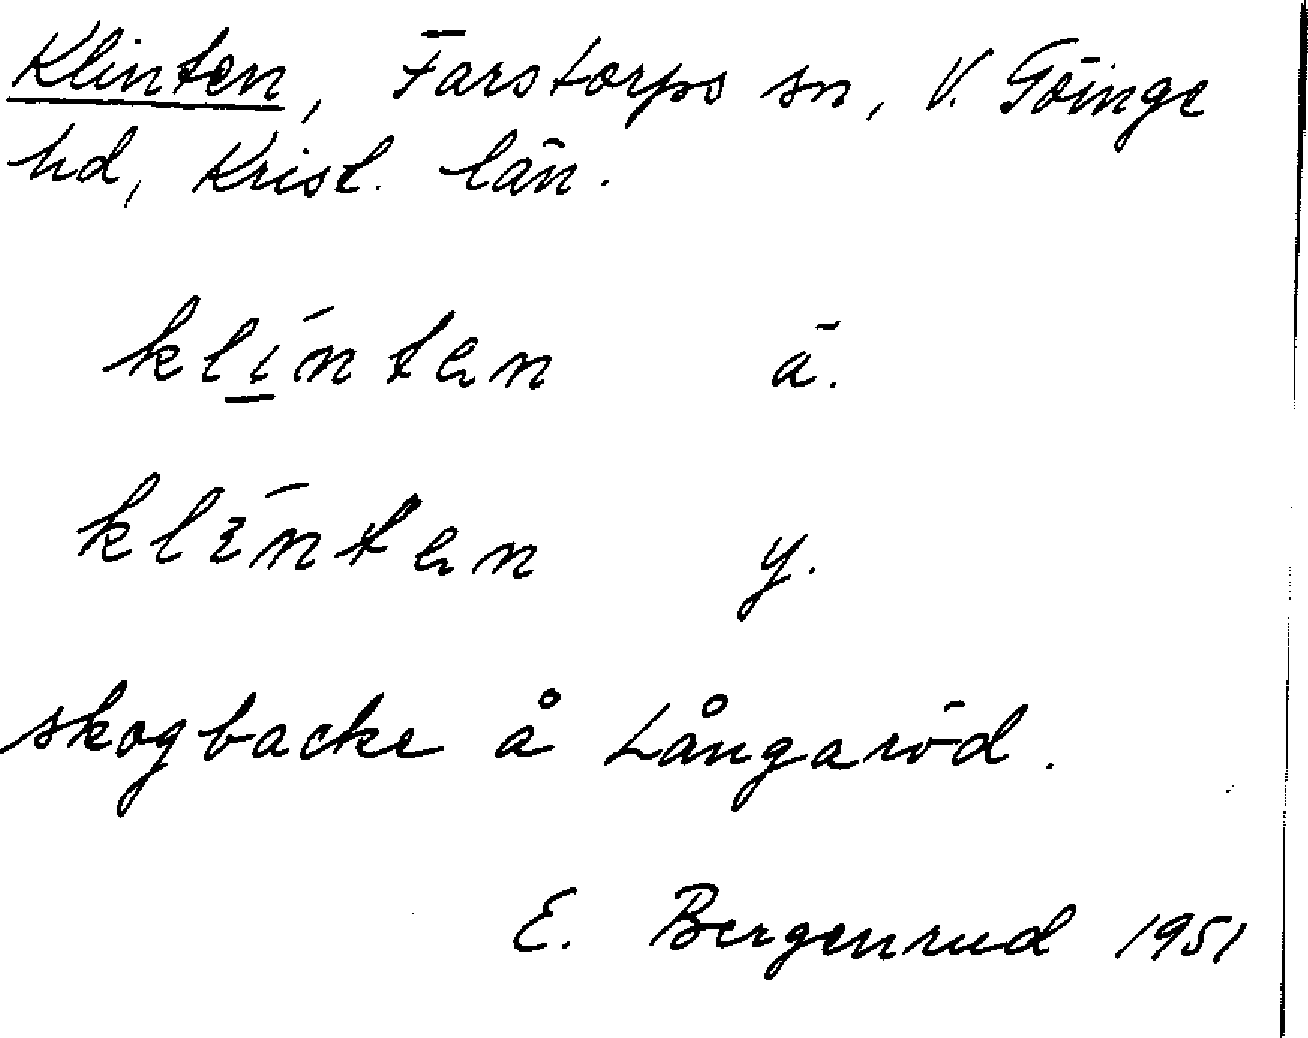 Klinten, Farstorps sn, V. Göinge
hd, Krist. län.
klinten ä.
klenten y.
skogbacke å Långaröd.
E. Bergenrud 1951